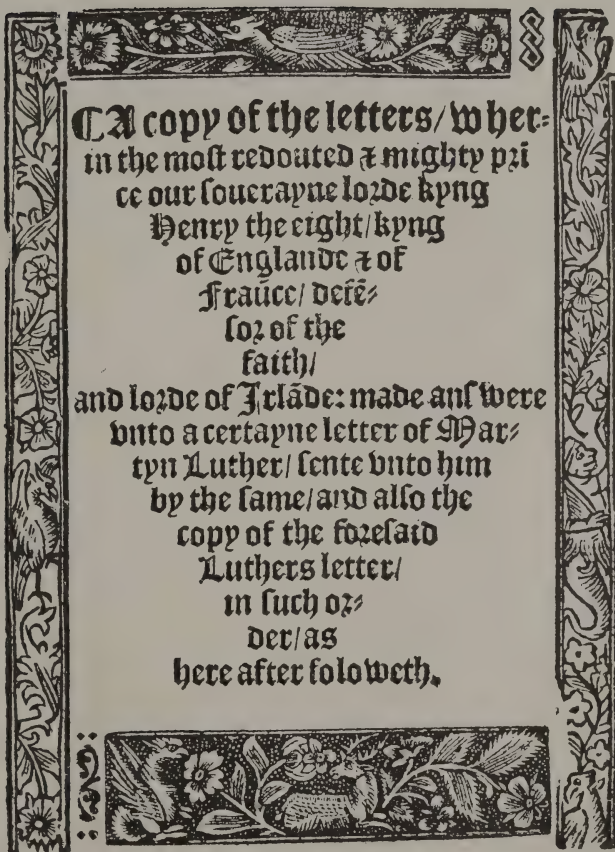 ¶A copy of the letters/ wher⸗
in the most redouted ⁊ mighty pri
ce our souerayne lorde kyng
Henry the eight/ kyng
of Englande ⁊ of
Fraūce/ defē⸗
sor of the
faith/
and lorde of Irlāde: made answere
vnto a certayne letter of Mar⸗
tyn Luther/ sente vnto him
by the same/ and also the
copy of the foresaid
Luthers letter/
in such or⸗
der/ as
here after foloweth.